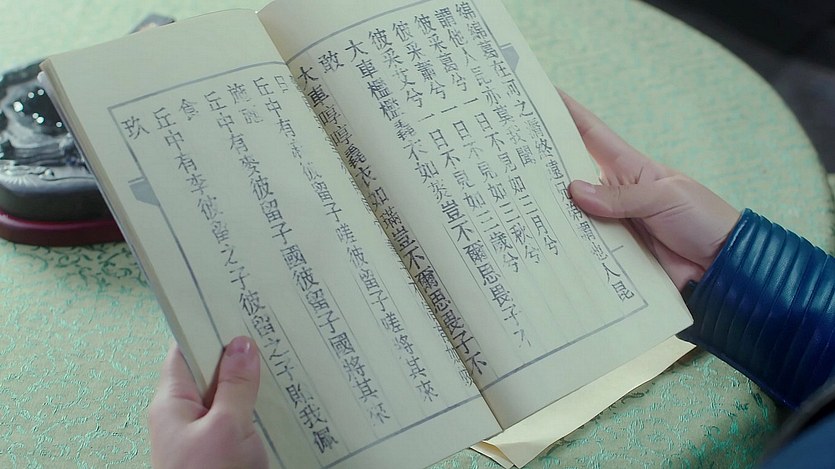 綿綿葛在河之漘終遠兄謂他人昆
謂他人昆亦莫我聞
彼采葛兮一日不見如三月兮
彼采蕭兮一日不見如三秋兮
彼采艾兮一日不見如三歲兮
大車檻檻毳衣如菼豈不爾思畏子不
敢
大車啍啍毳衣如璊豈不爾思畏子不
丘中有麻彼留子嗟彼留子嗟將其來
施施
丘中有麥彼留子國彼留子國將其來
食
丘中有李彼留之子彼留之子貽我佩
玖